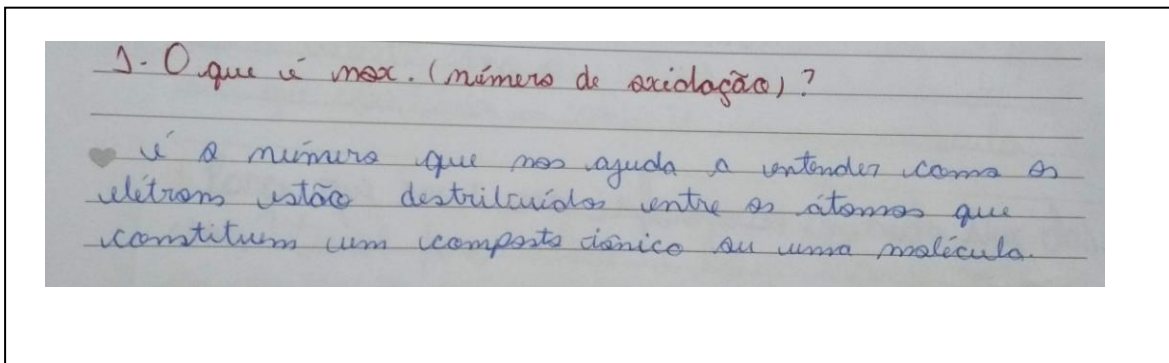 1- O que é nox. (número de oxidação)?
é o número que nos ajuda a entender como os
elétrons estão destribuídos entre os átomos que
constituem um composto iônico ou uma molécula.